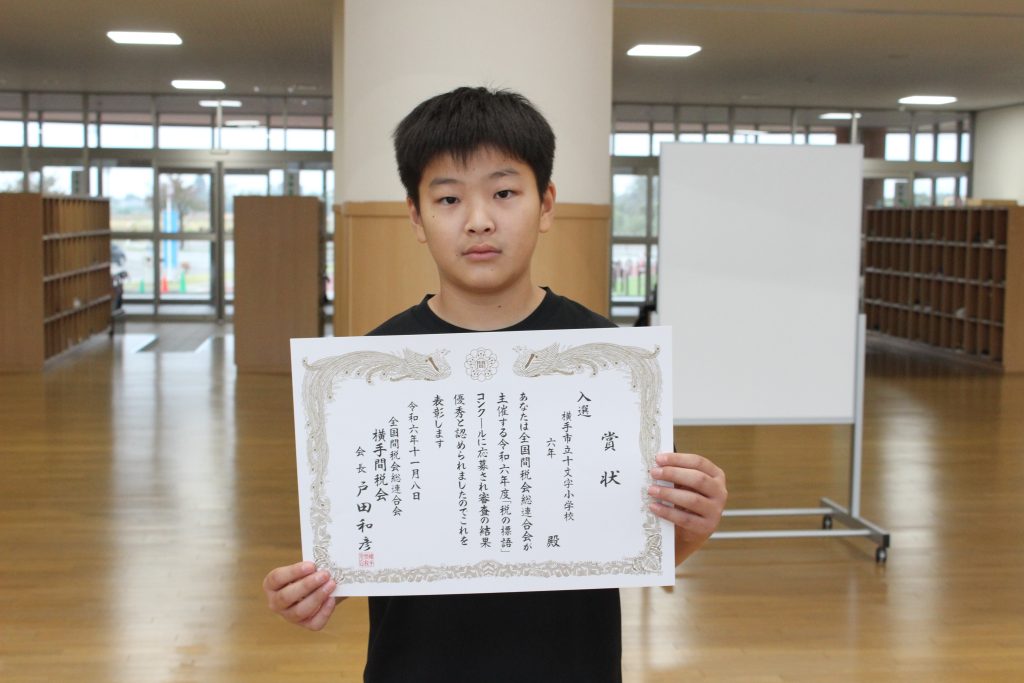 賞状
入選
横手市立十文字小学校
六年
殿
あなたは全国間税会総連合会が
主催する令和六年度「税の標語」
コンクールに応募され審査の結果
優秀と認められましたのでこれを
表彰します
令和六年十一月八日
全国間税会総連合会
横手間税会
会長 戸田和彦
間